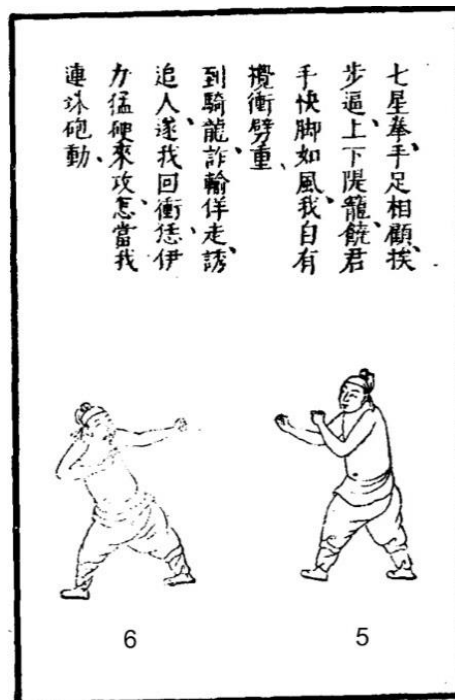 七星拳、手足相顧、挨
步逼上下隄籠、饒君
手快脚如風、我自有
攪衝劈重、
到騎龍、詐輸佯走、誘
追人、遂我回衝、恁伊
力猛硬來攻、怎當我
連珠砲動、
6 5